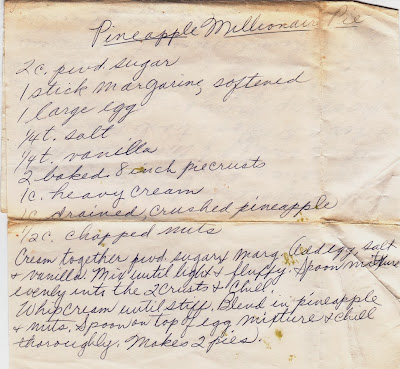 Pineapple Millionair Pie
2 c. pwd sugar
1 stick margarine, softened
1 large egg
1/4 t. salt
1/4 t. vanilla
2 baked 8 inch piecrusts
1 c. heavy cream
1c. drained, crushed pineapple
1/2 c. chopped nuts
Cream together pwd. sugar & marg. Add egg, salt
& vanilla. Mix until light & fluffy. Spoon mixture
evenly into the 2 crusts & chill.
Whip cream until stiff. Blend in pineapple
& nuts. Spoon on top of egg mixture & chill
thoroughly. Makes 2 pies.